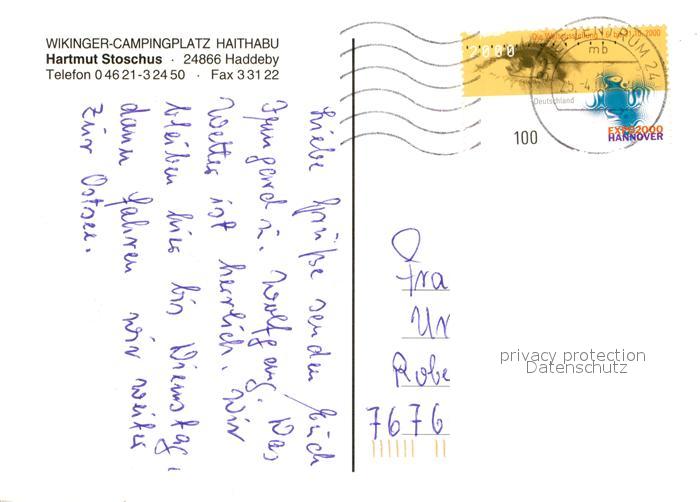 WIKINGER-CAMPINGPLATZ HAITHABU
Hartmut Stoschus · 24866 Haddeby
Telefon 0 46 21-3 24 50 · Fax 3 31 22
Liebe Grüße senden Euch
Irmgard u. Wolfgang. Das
Wetter ist herrlich. Wir
bleiben hier bis Dienstag,
dann fahren wir weiter
zur Ostsee.
Die Weltausstellung 1.6. bis 31.10.2000
2000
Deutschland
100
EXPO2000
HANNOVER
ZENTRUM 24
mb
Fra
Ur
Robe
7676
privacy protection
Datenschutz